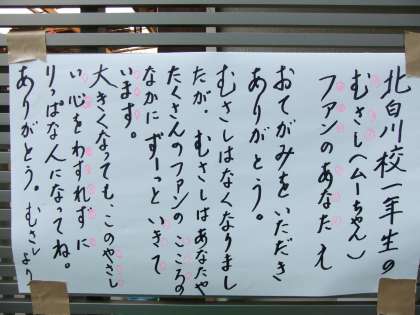 北白川校一年生の
むさし(ムーちゃん)
ファンのあなたえ
おてがみをいただき
ありがとう。
むさしはなくなりまし
たが、むさしはあなたや
たくさんのファンのこころの
なかにずーっといきて
います。
大きくなっても、このやさし
い心をわすれずに
りっぱな人になってね。
ありがとう。むさしより